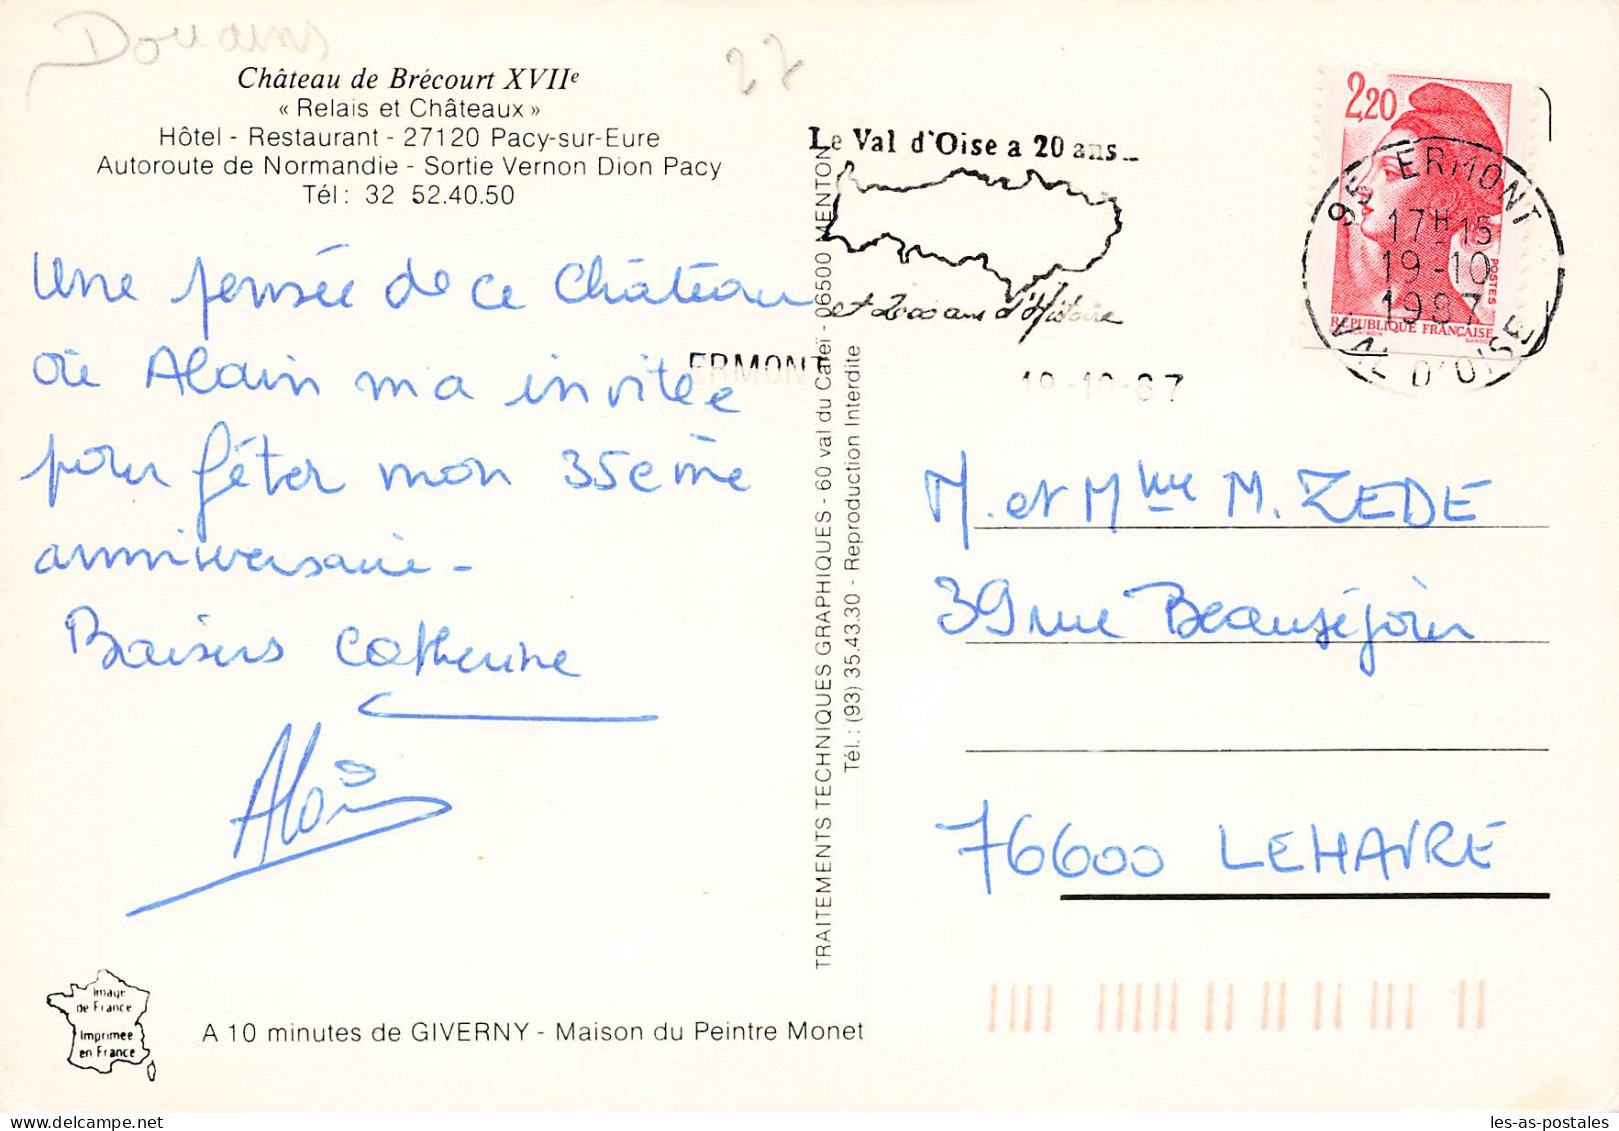 Douains
27
Château de Brécourt XVIIe
« Relais et Châteaux »
Hôtel - Restaurant - 27120 Pacy-sur-Eure
Autoroute de Normandie - Sortie Vernon Dion Pacy
Tél : 32 52.40.50
Une pensée de ce Château
où Alain m'a invitée
pour fêter mon 35ème
anniversaire -
Baisers Catherine
Alain
Le Val d'Oise a 20 ans...
et 2000 ans d'Histoire
ERMONT
19-10-87
2,20
POSTES
RÉPUBLIQUE FRANÇAISE
GANDON
95 ERMONT
17H15
19-10
1987
VAL D'OISE
TRAITEMENTS TECHNIQUES GRAPHIQUES - 60 val du Careï - 06500 MENTON
Tél. : (93) 35.43.30 - Reproduction Interdite
M. et Mme M. ZEDE
39 rue Beauséjour
76600 LE HAVRE
Image
de France
Imprimée
en France
A 10 minutes de GIVERNY - Maison du Peintre Monet
les-as-postales